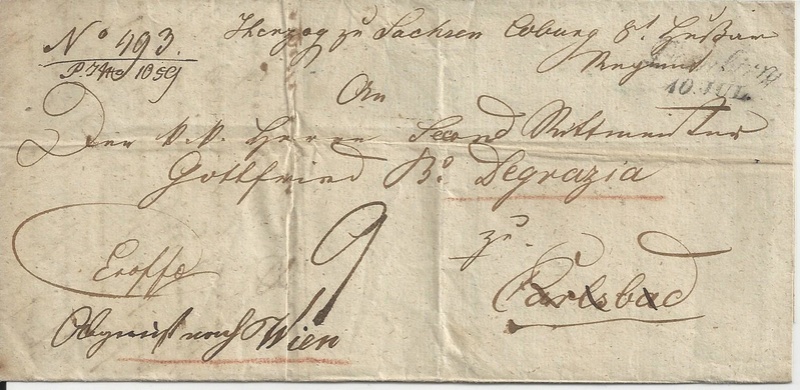 No 493.
Herzog zu Sachsen Coburg 8t Hußar
Regiment
10. JUL
An
Den k. k. Herrn Second Rittmeister
Gottfried Bo. Degrazia
zu
Carlsbad
9
Abgereist nach Wien